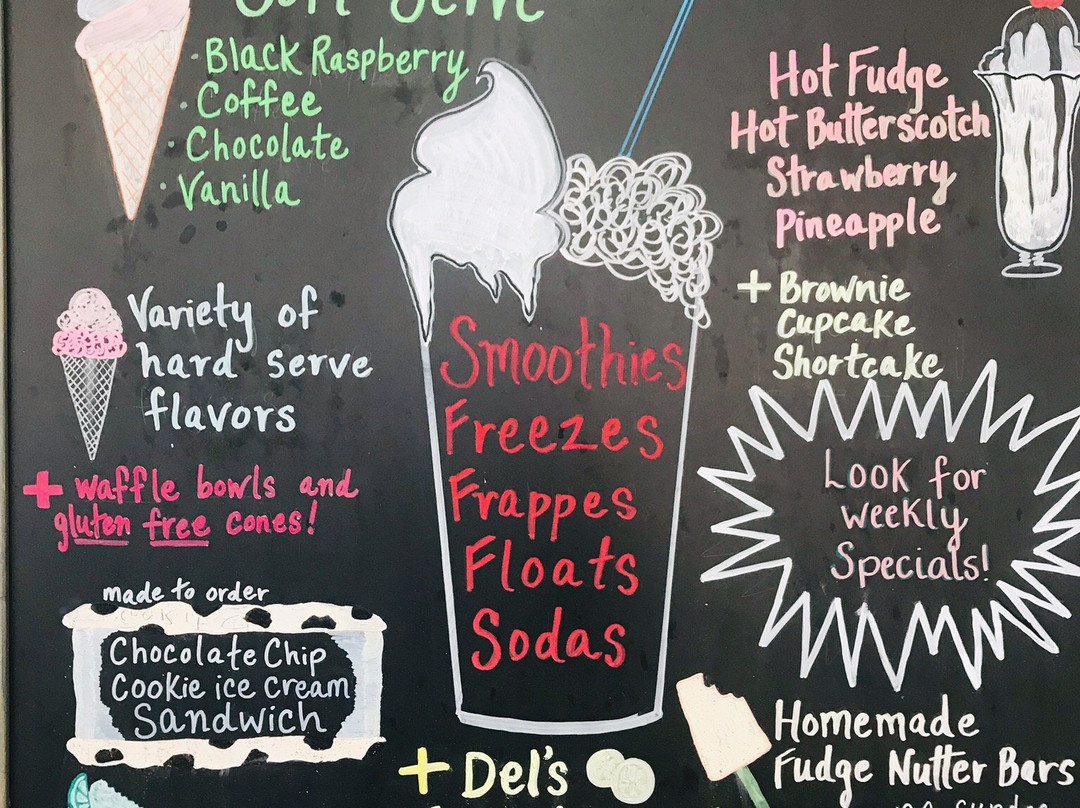 Soft Serve
· Black Raspberry
· Coffee
· Chocolate
· Vanilla
Variety of
hard serve
flavors
+ waffle bowls and
gluten free cones!
made to order
Chocolate Chip
Cookie ice cream
Sandwich
Smoothies
Freezes
Frappes
Floats
Sodas
+ Del's
Hot Fudge
Hot Butterscotch
Strawberry
Pineapple
+ Brownie
Cupcake
Shortcake
Look for
weekly
Specials!
Homemade
Fudge Nutter Bars